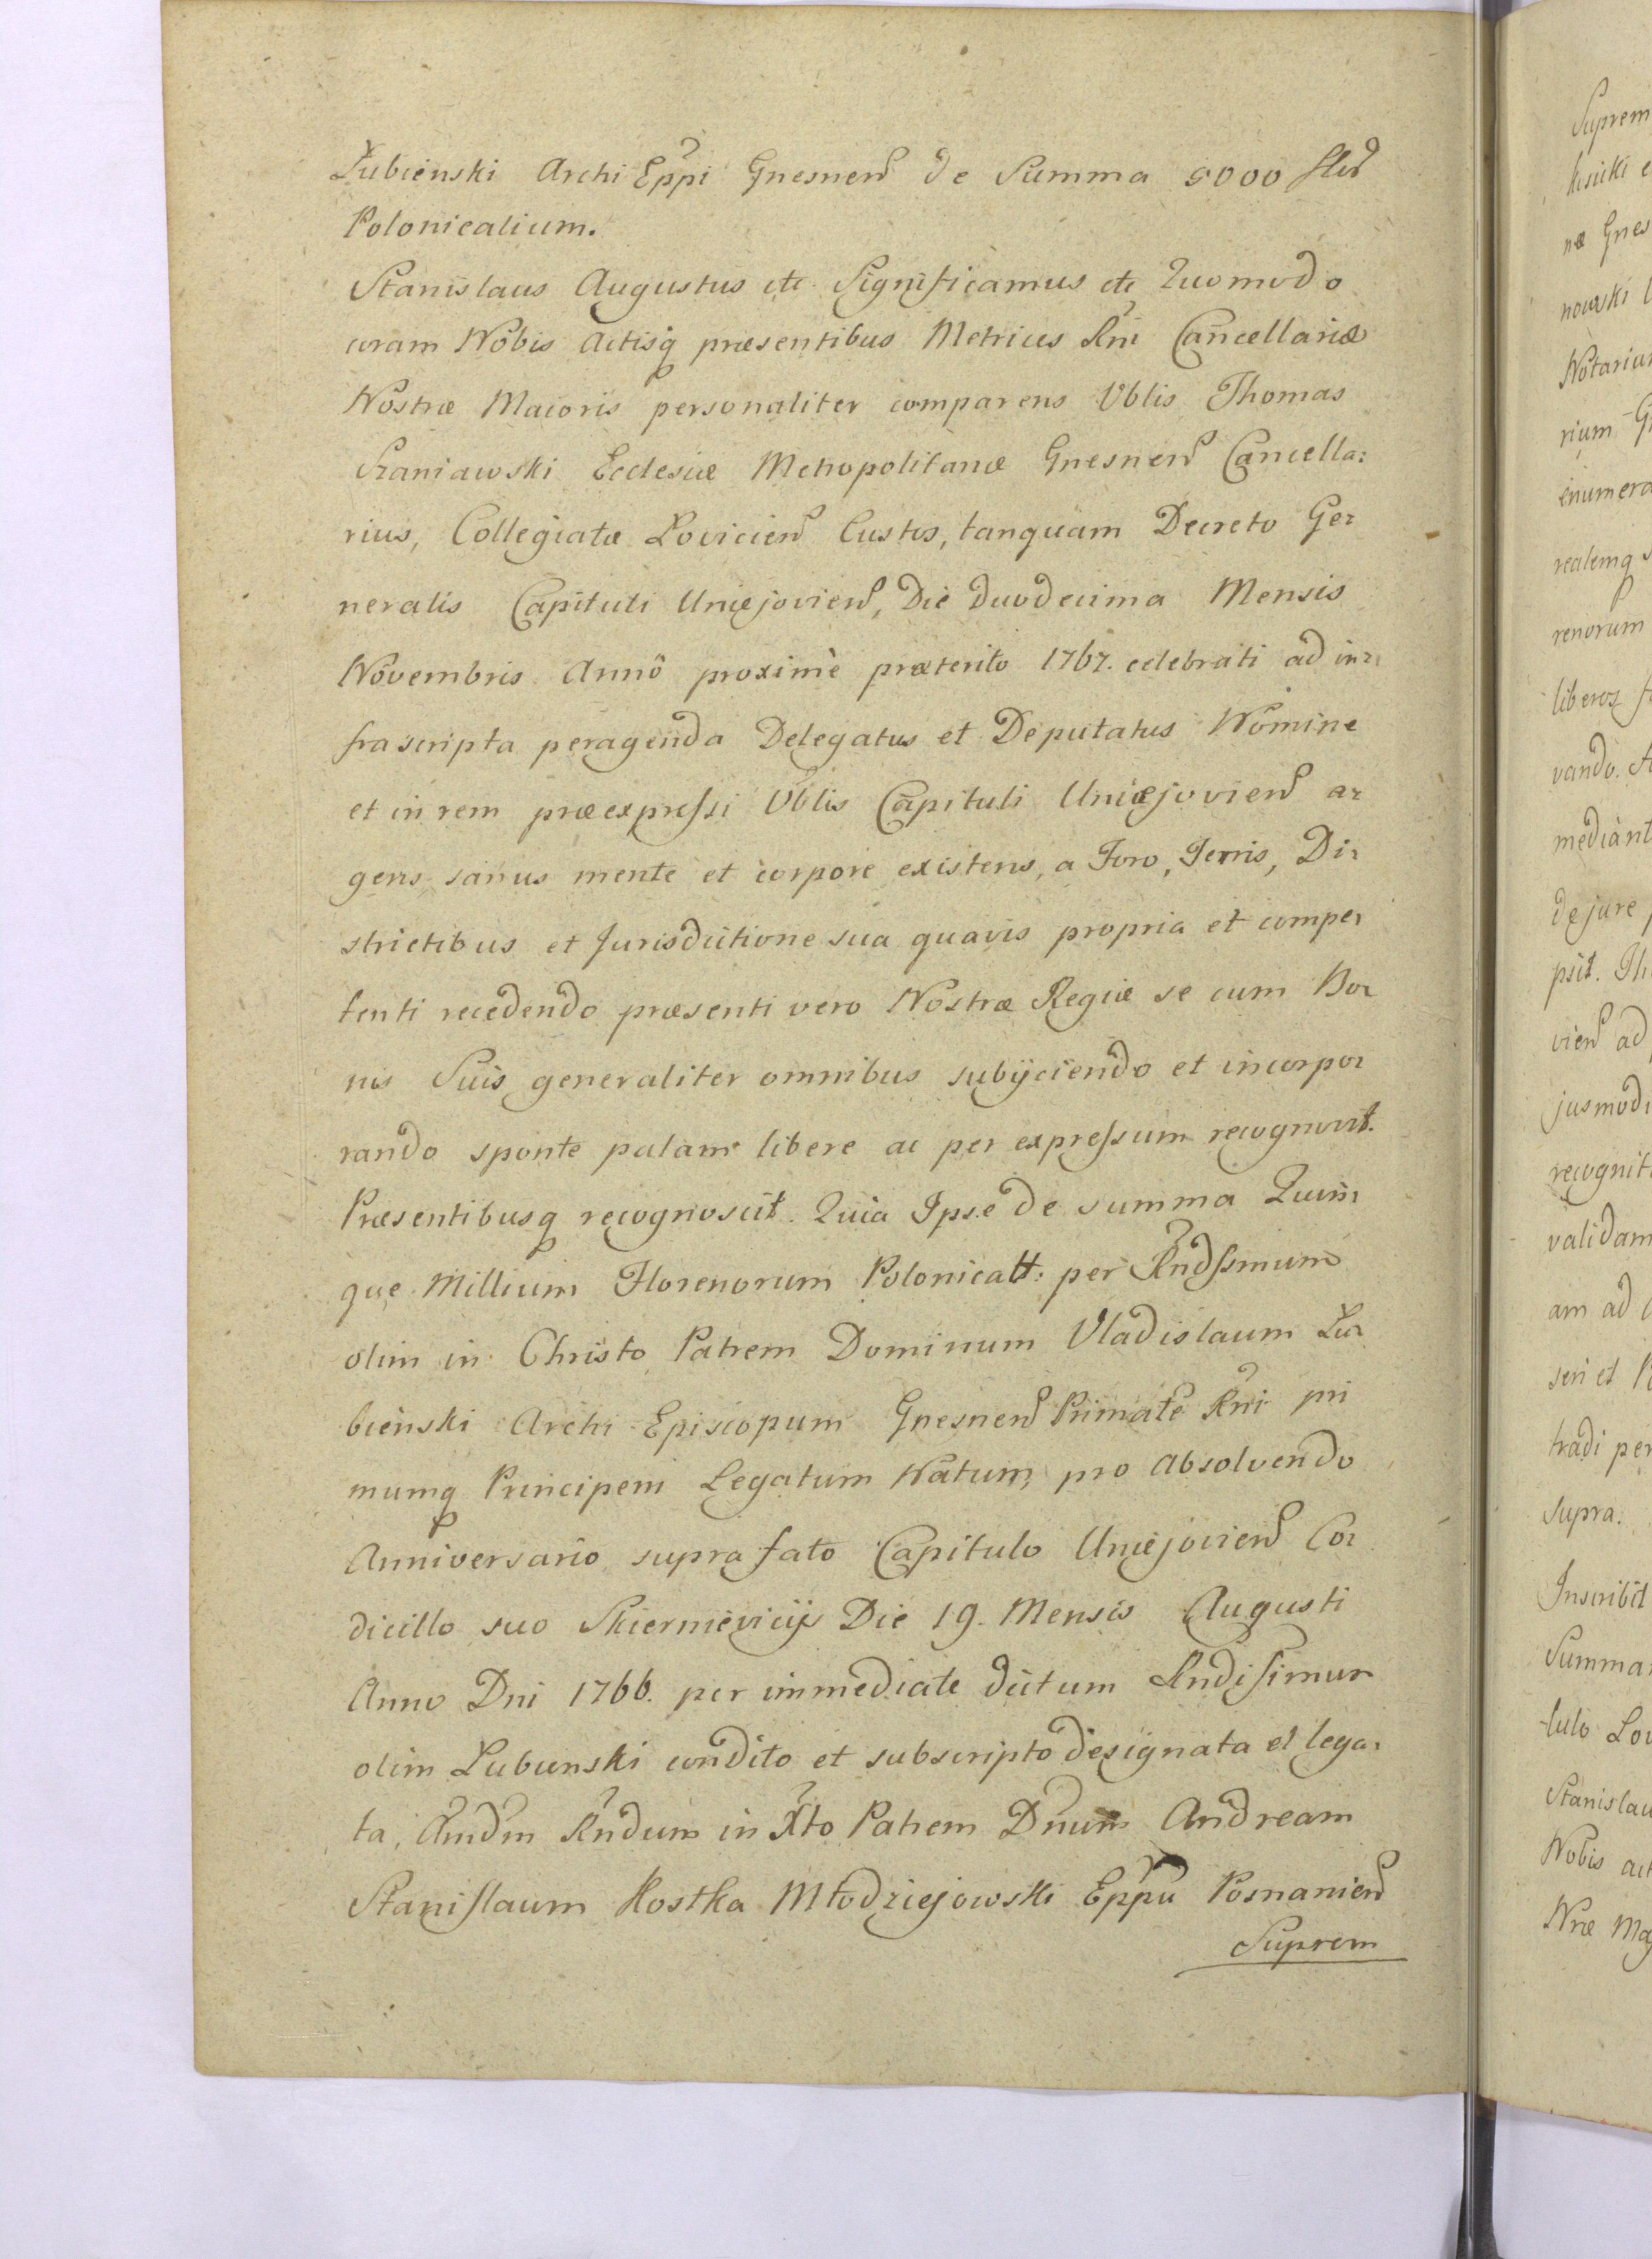 Łubienski Archi Eppi Gnesnen de Summa 5000 flor
Polonicalium.
Stanislaus Augustus etc Significamus etc Quomodo
coram Nobis Actisq præsentibus Metrices Rni Cancellariæ
Nostræ Maioris personaliter comparens Vblis Thomas
Szaniawski Ecclesiæ Metropolitanæ Gnesnen Cancella:
rius, Collegiatæ Lovicien Custos, tanquam Decreto Ge:
neralis Capituli Uniejovien, Die duodecima Mensis
Novembris Anno proximè præterito 1767. celebrati ad in:
frascripta peragenda Delegatus et Deputatus Nomine
et in rem præexpressi Vblis Capituli Uniejovien a:
gens sanus mente et corpore existens, a Foro, Terris, Di:
strictibus et Jurisdictione sua quavis propria et compe:
tenti recedendo præsenti vero Nostræ Regiæ se cum Bo:
nis Suis generaliter omnibus subijciendo et incorpo:
rando sponte palam libere ac per expressum recognovit.
Præsentibusq recognoscit. Quia Ipse de summa Quin:
que Millium Florenorum Polonicall: per Rndssmum
olim in Christo Patrem Dominum Vladislaum Łu:
bienski Archi Episcopum Gnesnen Primate Rni pri
mumq Principem Legatum Natum, pro Absolvendo
Anniversario suprafato Capitulo Uniejovien Co:
dicillo suo Skiernievicijs Die 19. Mensis Augusti
Anno Dni 1766. per immediate dictum Rndissimum
olim Lubienski condito et subscripto designata et lega:
ta, Rndum in Xto Patrem Dnum Andream
Stanislaum Kostka Młodziejowski Eppu Posnanien
Suprem
Suprem
næ Gnes
nowski
Notariu
rium
enumera
realemq
renorum
vando.
mediant
de jure
psit. Th
vien ad
jusmodi
recognit
validam
am ad
seri et
tradi per
supra.
Inscribit
Summa
tulo Lov
Stanislau
Nobis act
Nræ Ma